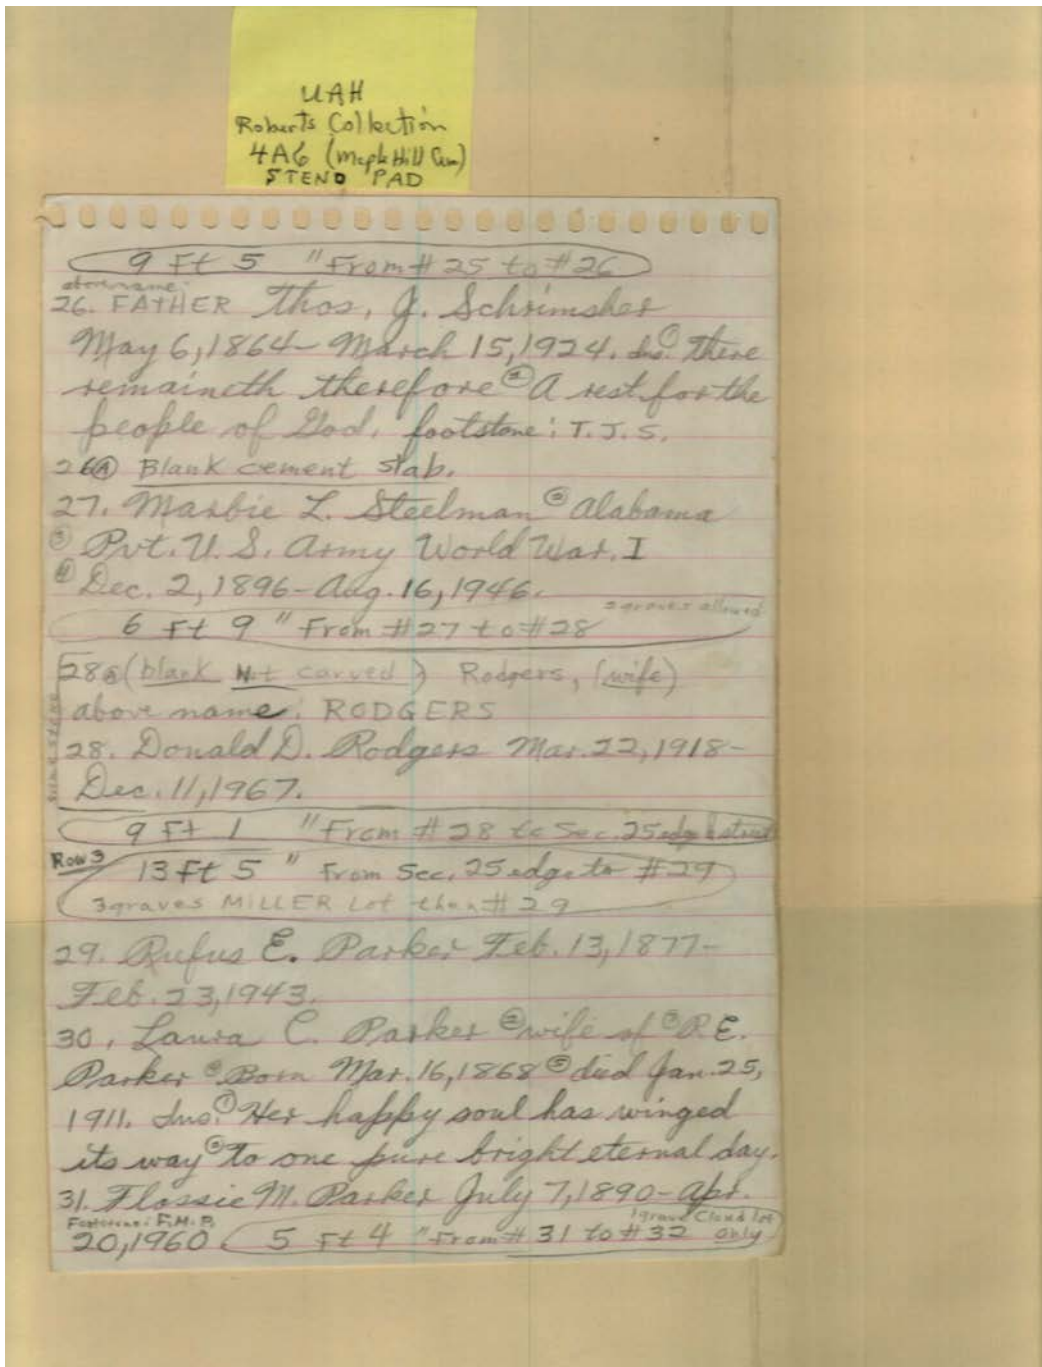 UAH
Roberts Collection
4A6 (Maple Hill Cem)
STENO PAD
9 Ft 5 " From # 25 to # 26
above name:
26. FATHER Thos. J. Schrimsher
May 6, 1864 - March 15, 1924. Ins. ① There
remaineth therefore ② A rest for the
people of God. footstone: T.J.S.
26Ⓐ Blank cement slab.
27. Marbie L. Steelman ② Alabama
③ Pvt. U.S. Army World War. I
④ Dec. 2, 1896 - Aug. 16, 1946.
2 graves allowed
6 Ft 9 " From # 27 to # 28
28ⓐ (blank Not carved) Rodgers, (wife)
above name: RODGERS
28. Donald D. Rodgers Mar. 22, 1918 -
Dec. 11, 1967.
9 Ft 1 " From # 28 to Sec. 25 edge & street
Row 3
13 Ft 5 " From Sec. 25 edge to # 29
3 graves MILLER Lot then # 29
29. Rufus E. Parker Feb. 13, 1877 -
Feb. 23, 1943.
30. Laura C. Parker ② wife of ③ R.E.
Parker ④ Born Mar. 16, 1868 ⑤ died Jan. 25,
1911. Ins. ① Her happy soul has winged
its way ② To one pure bright eternal day.
31. Flossie M. Parker July 7, 1890 - Apr.
Footstone: F.M.P. 1 grave Closed lot
20, 1960 5 Ft 4 " From # 31 to # 32 only